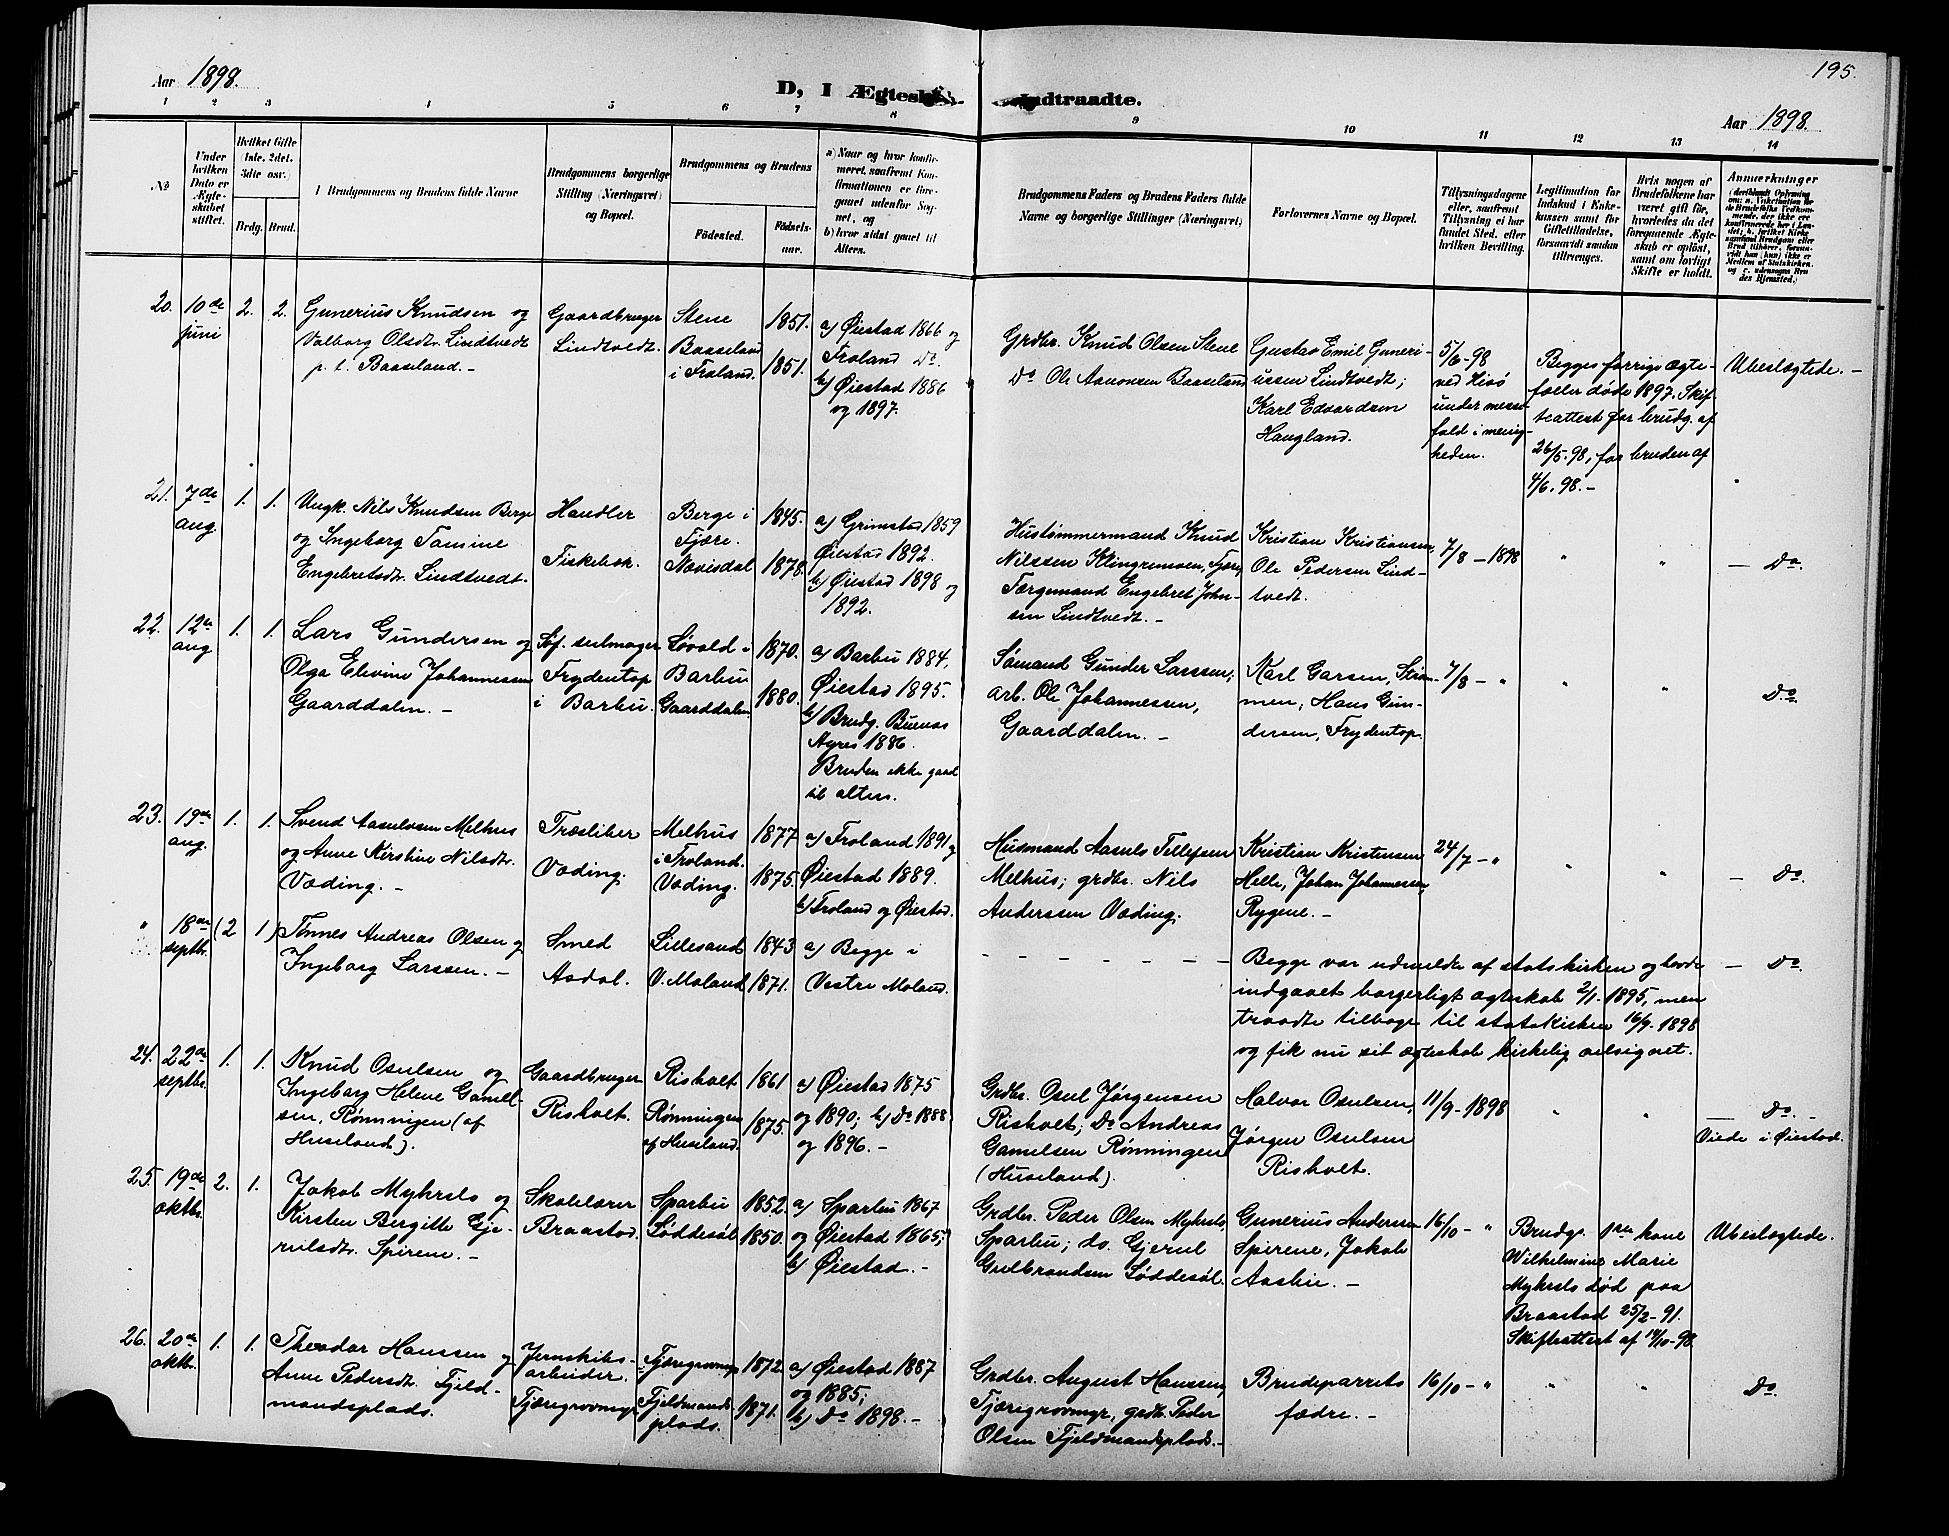 195.
Aar 1898.
D, I Ægtesk Indtraadte.
Aar 1898.
1 2 3 4 5 6 7 8 9 10 11 12 13 14
No
Under hvilken Dato er Ægteskabet stiftet.
Hvilket Gifte (1ste, 2det, 3die osv.)
Brdg. Brud.
Brudgommens og Brudens fulde Navne
Brudgommens borgerlige Stilling (Næringsvei) og Bopæl.
Brudgommens og Brudens
Fødested.
Fødselsaar.
a) Naar og hvor konfirmeret, saafremt Konfirmationen er foregaaet udenfor Sognet, og
b) hvor sidst gaaet til Alters.
Brudgommens Faders og Brudens Faders fulde Navne og borgerlige Stillinger (Næringsvei)
Forlovernes Navne og Bopæl.
Tillysningsdagene eller, saafremt Tillysning ei har fundet Sted, efter hvilken Bevilling.
Legitimation for Indskud i Enkekassen samt for Giftetilladelse, forsaavidt saadan tiltrænges.
Hvis nogen af Brudefolkene har været gift før, hvorledes da det foregaaende Ægteskab er opløst, samt om lovligt Skifte er holdt.
Anmærkninger
20. 10de juni 2. 2.
Gunerius Knudsen og
Valborg Olsdtr. Lindtvedt
p. t. Baaseland. -
Gaardbruger
Lindtvedt.
Stene
Baaseland
i Froland.
1851.
1851.
a) Øiestad 1866 og
Froland Do.
b) Øiestad 1886
og 1897.
Grdbr. Knud Olsen Stene
Do Ole Aanonsen Baaseland
Gustav Emil Guneri-
ussen Lindtvedt;
Karl Edvardsen
Haugland.
5/6-98
ved Hisö
under messe-
fald i menig-
heden.
Begges forrige ægte-
fæller døde 1897. Skif-
teattest for brudg. af
26/5. 98, for bruden af
4/6. 98. -
Ubeslægtede. -
21. 7de aug 1. 1.
Ungk. Nils Knudsen Berge
og Ingeborg Tomine
Engebretsdtr. Lindtvedt.
Handler
Fiskebæk.
Berge i
Fjære.
Nævisdal
1845.
1878.
a) Grimstad 1859
Øiestad 1892.
b) Øiestad 1898 og
1892.
Hustømmermand Knud
Nilssen Klingremoen, Fjære
Færgemand Engebret John-
sen Lindtvedt. -
Kristian Kristiansen,
Ole Pedersen Lind-
tvedt.
7/8 - 1898 " "
- Do.
22. 12te aug 1. 1.
Lars Gundersen og
Olga Elevine Johannessen
Gaarddalen. -
Søf. seilmager
Frydentop
i Barbu.
Løvold i
Barbu
Gaarddalen
1870.
1880.
a) Barbu 1884,
Øiestad 1895.
b) Brudg. Buenos
Ayres 1886.
Bruden ikke gaaet
til alters.
Sømand Gunder Larssen,
arb. Ole Johannessen,
Gaarddalen. -
Karl Garsen, Strøm-
men, Hans Gun-
dersen, Frydentop.
7/8 - " " "
Do.
23. 19de aug. 1. 1.
Svend Aasulvsen Melhus
og Anne Kirstine Nilsdtr.
Væding. -
Træsliber
Væding.
Melhus
i Froland.
Væding.
1877
1875.
a) Froland 1891 og
Øiestad 1889.
b) Froland og Øiestad.
Husmand Aasuls Tellefsen
Melhus; grdbr. Nils
Anderssen Væding.
Kristian Kristensen
Helle, Johan Johannessen
Rygene. -
24/7 - " " "
- Do.
" 18de septbr. (2 1)
Tønnes Andreas Olsen og
Ingeborg Larssen. -
Smed
Asdal.
Lillesand
V. Moland
1843
1871.
a) Begge i
Vestre Moland.
- - - - - - -
Begge var udmeldte af statskirken og havde
indgaaet borgerligt ægteskab 2/1 - 1895, men
traadte tilbage til statskirken 16/9 - 1898
og fik nu sit ægteskab kirkelig velsignet.
- Do.
24. 22de septbr. 1. 1.
Knud Osulsen og
Ingeborg Helene Gamel-
sen, Rønningen (af
Huseland).
Gaardbruger
Risholt.
Risholt
Rønningen
af Huseland.
1861
1875.
a) Øiestad 1875
og 1890; b) Do 1888
og 1896. -
Grdbr. Osul Jørgensen
Risholt; Do Andreas
Gamelsen Rønningen
(Huseland).
Halvor Osulsen,
Jørgen Osulsen
Risholt.
11/9 - 1898 " "
- Do. -
Viede i Øiestad.
25. 19de oktbr. 2. 1.
Jakob Myhrslo og
Kirsten Birgitte Gje-
rulsdtr. Spirene. -
Skolelærer
Braastad.
Sparbu
Løddesøl
1852.
1850.
a) Sparbu 1867
og Øiestad 1865;
b) Øiestad. -
Grdbr. Peder Olsen Myhrslo,
Sparbu; do. Gjerul
Gulbrandsen Løddesøl.
Gunerius Andersen
Spirene, Jakob
Aasbie. -
16/10 - "
Brudgs. 1ste kone
Wilhelmine Marie
Myhrslo død paa
Braastad 25/2 - 91.
Skifteattest af 19/10 - 98.
Ubeslægtede.
26. 20de oktbr. 1. 1.
Theodor Hanssen og
Anne Pedersdt. Fjeld-
mandsplads.
Jernskibs-
arbeider.
Fjæregrovmyr
Fjæregrovmyr
Fjeldmands-
plads.
1872
1871.
a) Øiestad 1887
og 1885;
b) Do 1898. -
Grdbr. August Hanssen,
Fjæregrovmyr, grdbr. Peder
Olsen Fjeldmandsplads. -
Brudeparrets
fædre. -
16/10 - " " "
Do.